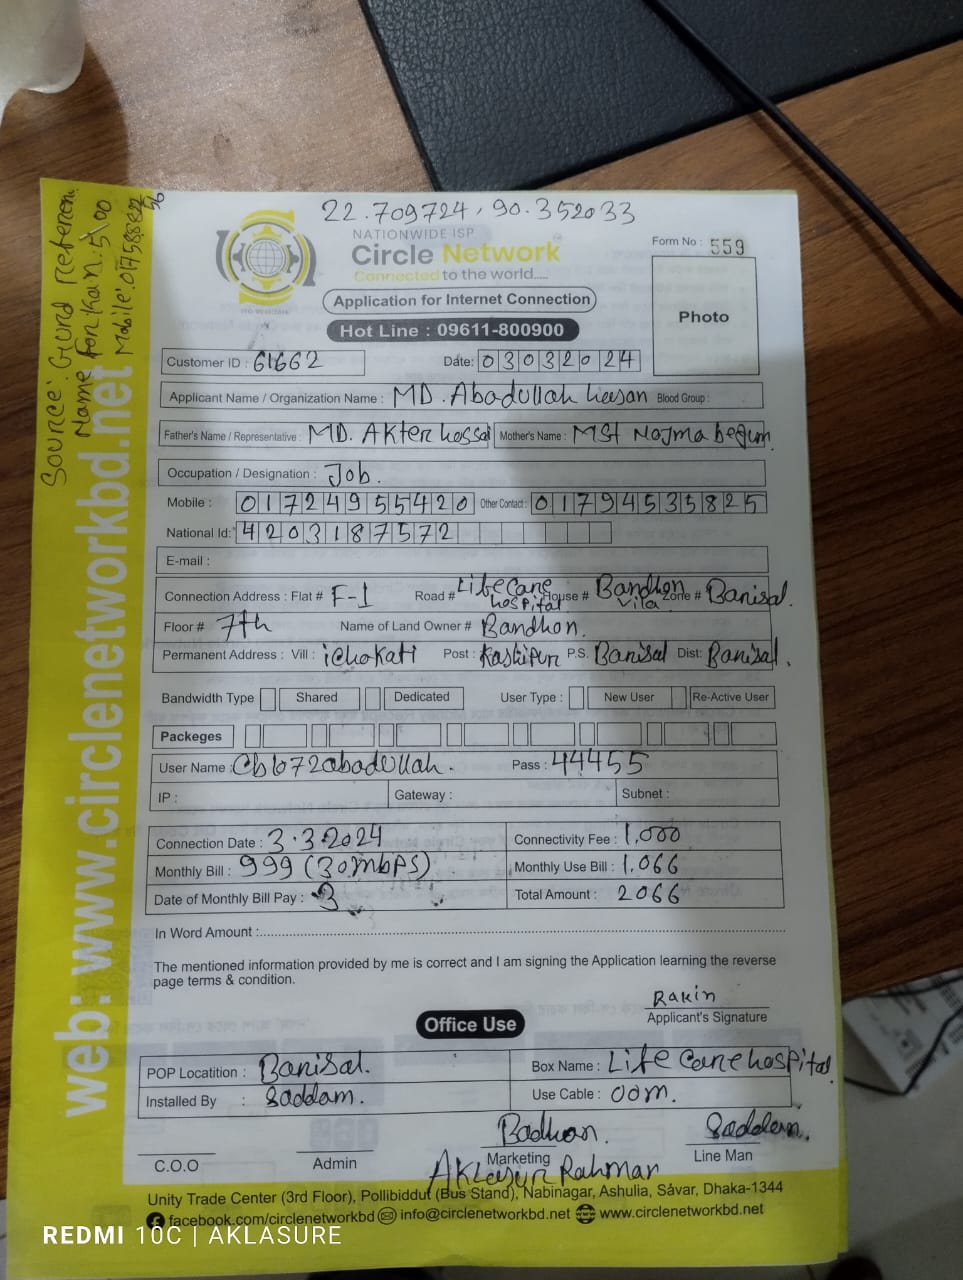 22.709724, 90.352033
NATIONWIDE ISP
Circle Network
Connected to the world.....
Form No : 559
Photo
Application for Internet Connection
Hot Line : 09611-800900
Customer ID : 61662
Date: 03032024
Applicant Name / Organization Name : MD. Abadullah hasan Blood Group :
Father's Name / Representative : MD. Akter hossai Mother's Name : MSt Nojma begum
Occupation / Designation : Job.
Mobile : 01724955420 Other Contact : 01794535825
National Id: 4203187572
E-mail :
Connection Address : Flat # F-1 Road # Life Cane hospital House # Bandhon Vila Zone # Barisal.
Floor # 7th Name of Land Owner # Bandhon.
Permanent Address : Vill : ichokati Post : Kashipur P.S. Barisal Dist: Barisal.
Bandwidth Type Shared Dedicated User Type : New User Re-Active User
Packeges
User Name : Cb1672abadullah. Pass : 44455
IP : Gateway : Subnet :
Connection Date : 3.3.2024 Connectivity Fee : 1,000
Monthly Bill : 999 (30mbps) Monthly Use Bill : 1,066
Date of Monthly Bill Pay : 3 Total Amount : 2066
In Word Amount :
The mentioned information provided by me is correct and I am signing the Application learning the reverse
page terms & condition.
Rakin
Applicant's Signature
Office Use
POP Locatition : Barisal. Box Name : Life Cane hospital
Installed By : Saddam. Use Cable : 00m.
Badhon. Saddam.
C.O.O Admin Marketing Line Man
Aklasur Rahman
Unity Trade Center (3rd Floor), Pollibiddut (Bus Stand), Nabinagar, Ashulia, Savar, Dhaka-1344
facebook.com/circlenetworkbd info@circlenetworkbd.net www.circlenetworkbd.net
web: www.circlenetworkbd.net
Source:
Name
Mobile:
REDMI 10C | AKLASURE